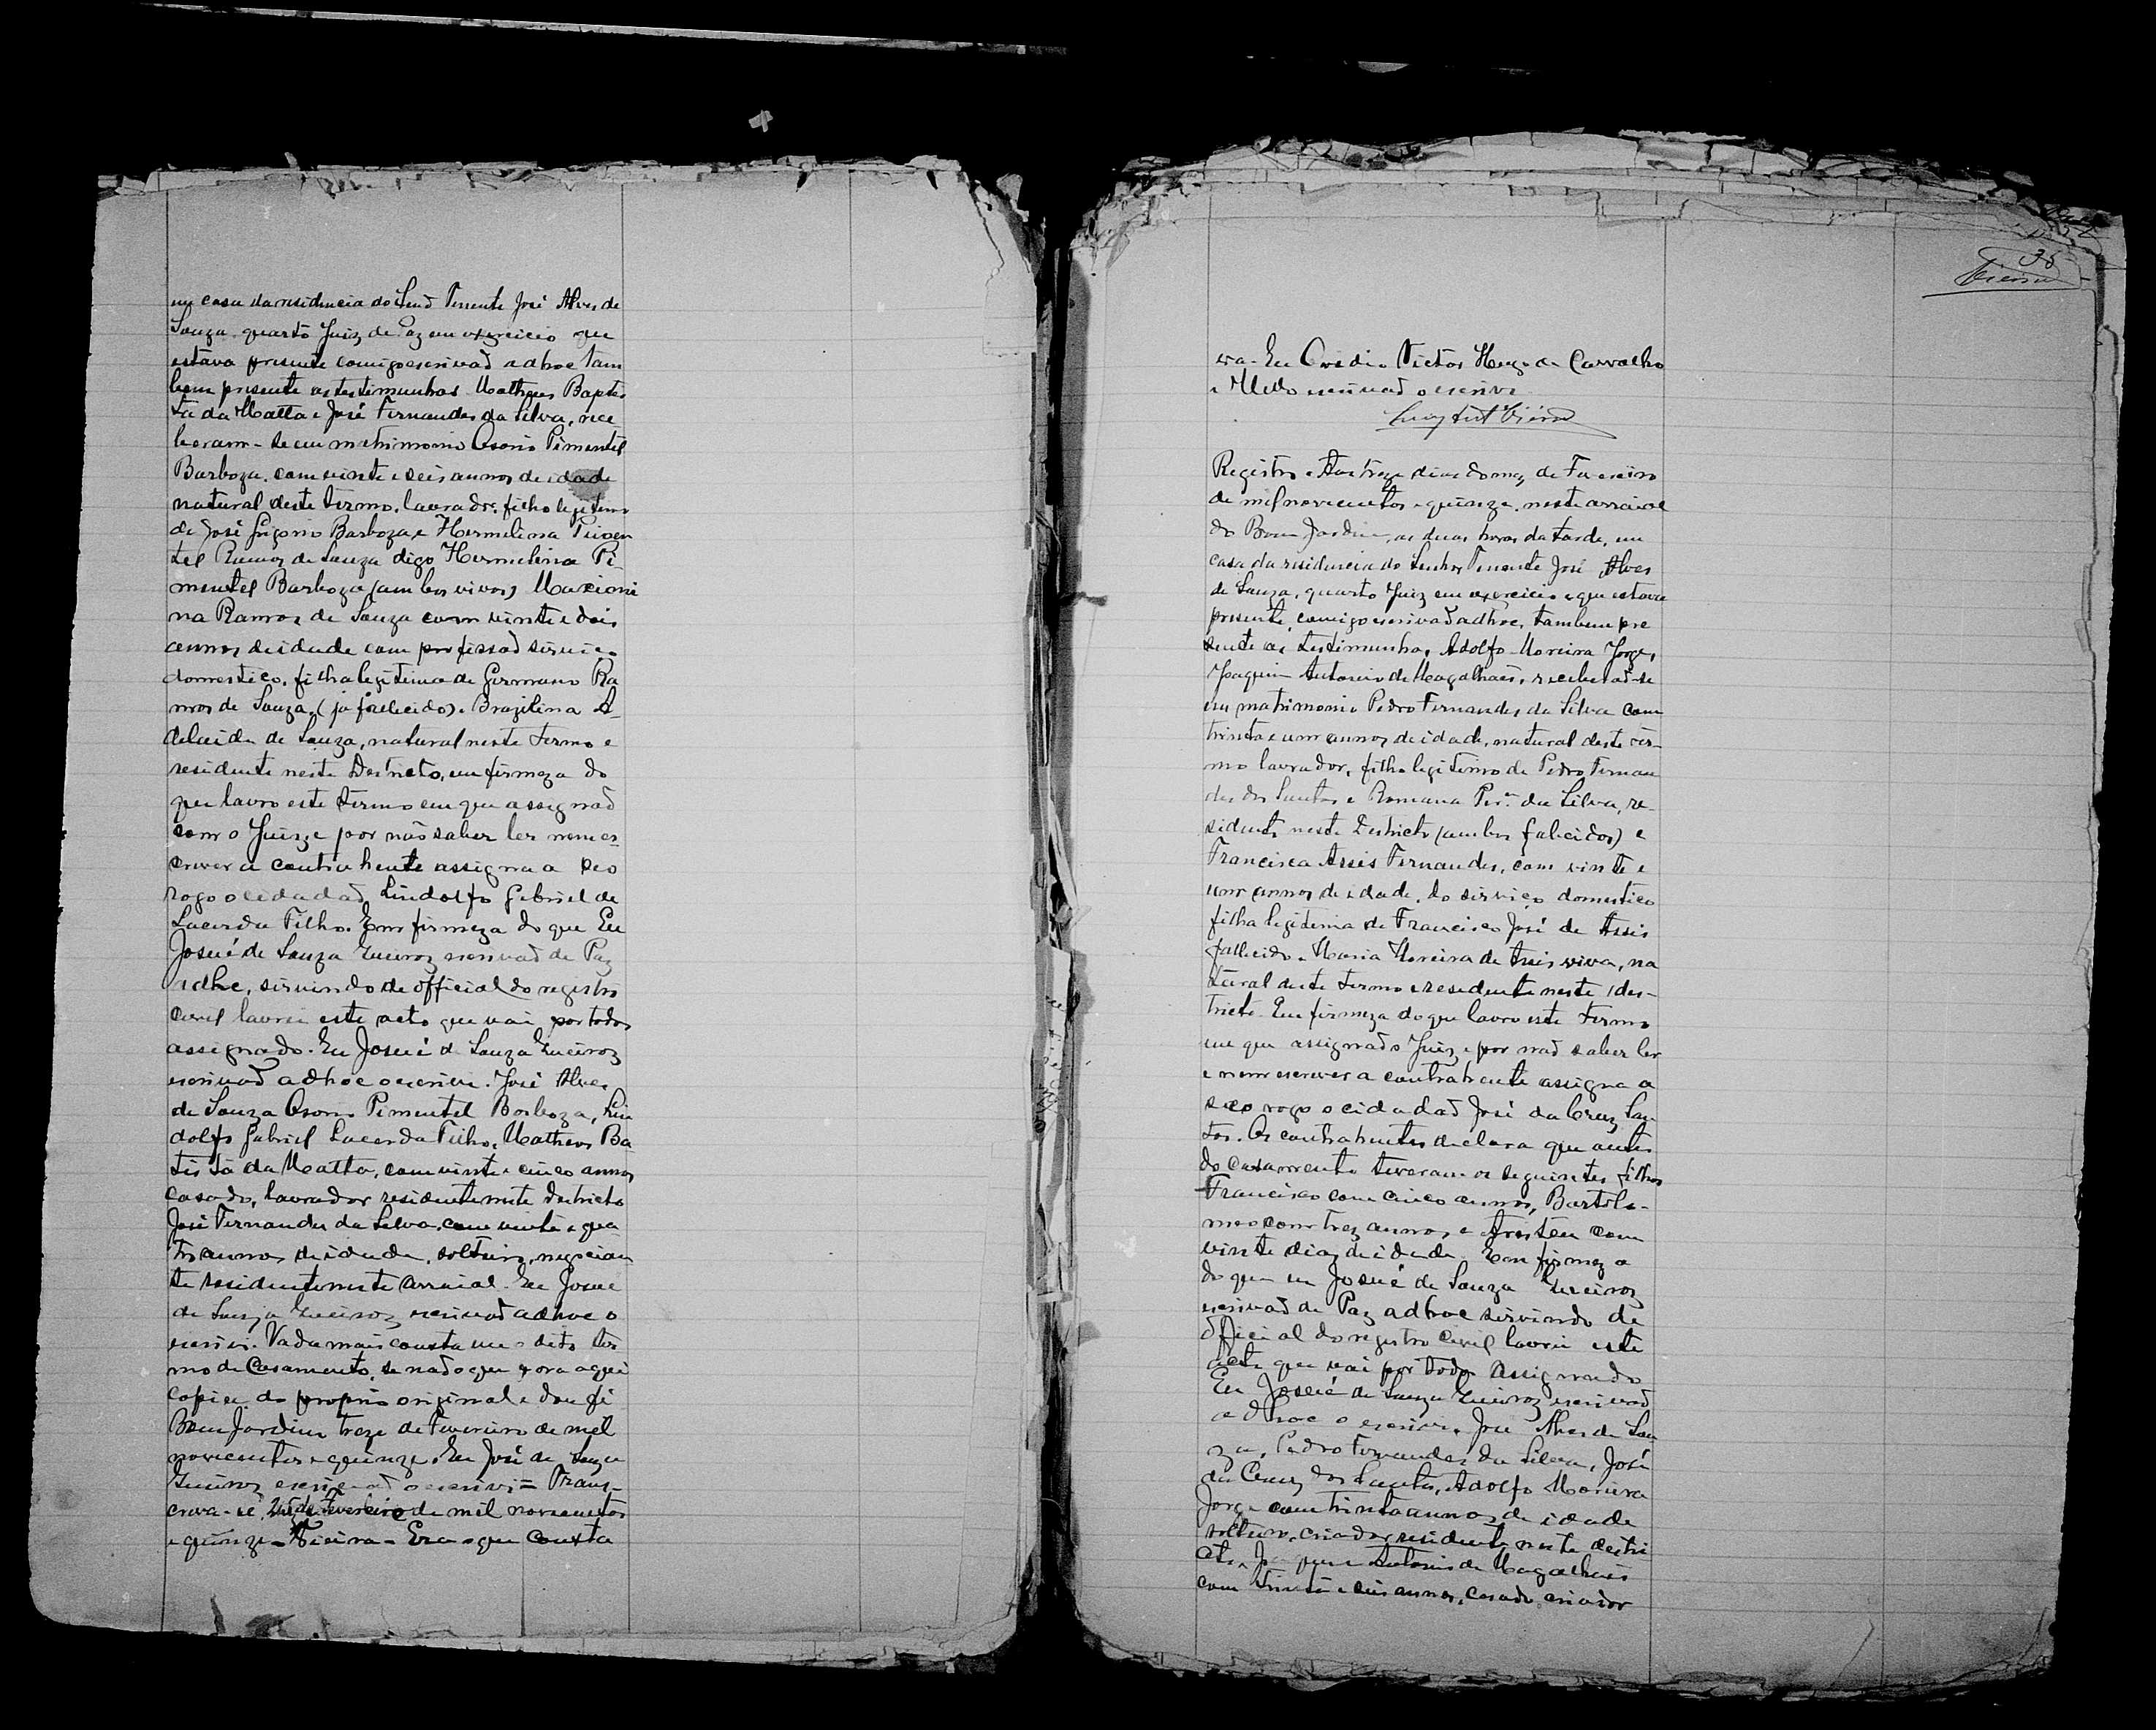 em casa da residencia do Snd Tenente José Alves de
Souza quarto Juiz de Paz em exercicio que
estava presente comigo escrivad adhoc tam
bem presente as testimunhas Matheus Baptis
ta da Matta e José Fernandes da Silva, rece
beram-se em matrimonio Osorio Pimentel
Barboza, com vinte e seis annos de idade
natural deste termo, lavrador, filho legitimo
de José Barboza e Hermelina Pimen
tel Ramos de Souza digo Hermelina Pi-
mentel Barboza (ambos vivos) Maximi
na Ramos de Souza com vinte e dois
annos de idade com profissad serviço
domestico, filha legitima de Germano Ra
mos de Souza, (já fallecido) e Brazilina A-
delaide de Souza, natural neste termo e
residente neste Destricto, em firmeza do
que lavro este termo em que assignad
com o Juiz, e por não saber ler nem es-
crever a contrahente assigna a seo
rogo o cidadad Lindolfo Gabriel de
Lacerda Filho. Em firmeza do que Eu
Josué de Souza Queiroz escrivad de Paz
adhc, servindo de official do registro
civil lavrei este acto que vai por todos
assignado. Eu Josué de Souza Queiroz
escrivad adhoc o escrivi. José Alves
de Souza Osorio Pimentel Barboza, Lin
dolfo Gabriel Lacerda Filho, Matheus Ba
tista da Matta, com vinte e cinco annos
casado, lavrador residente neste Destricto
José Fernandes da Silva, com vinte e qua
tro annos de idade, solteiro, negocian
te residente neste arraial. Eu Josué
de Souza Queiroz escrivad adhoc o
escrivi. Nada mais consta em o dito ter
mo de Casamento, se nad o que fora aqui
copiei do proprio original e dou fé
Bom Jardim treze de Fevereiro de mil
novecentos e quinze. Eu José de Souza
Queiroz escrivad o escrivi = Trans-
creva-se, de Fevereiro de mil novecentos
e quinze - Vieira - Era o que consta
35
Vieira
va. Eu Ovidio Victor Hugo de Carvalho
e Mello escrivad o escrivi
Registro. Aos treze dias do mez de Fevereiro
de mil novecentos e quinze, neste arraial
do Bom Jardim, as duas horas da tarde, em
casa da residencia do Senhor Tenente José Alves
de Souza, quarto Juiz em exercicio e que estava
presente, comigo escrivad adhoc, tambem pre
sente as testimunhas, Adolfo Moreira Jorge,
Joaquim Antonio de Magalhães, receberad-se
em matrimonio Pedro Fernandes da Silva com
trinta e um annos de idade, natural deste ter-
mo lavrador, filho legitimo de Pedro Fernan
des dos Santos e Romana Per.ª da Silva, re-
sidente neste Destricto (ambos falecidos) e
Francisca Assis Fernandes, com vinte e
um annos de edade, do serviço domestico
filha legitima de Francisco José de Assis
fallecido e Maria Moreira de Assis viva, na
tural deste termo e residente neste des-
tricto. Em firmeza do que lavro este termo
em que assignad o Juiz, e por nad saber ler
e nem escrever a contrahente assigna a
seo rogo o cidadad José da Cruz San
tos. Os contrahentes declara que antes
do casamento tiveram os seguintes filhos
Francisco com cinco annos, Bartolo-
meo com trez annos, e com
vinte dias de idade. Em firmeza
do que eu Josué de Souza Queiroz
escrivad de Paz adhoc servindo de
official do registro civil lavrei este
acto que vai por todos assignado
Eu Josué de Souza Queiroz escrivad
adhoc o escrivi. José Alves de Sou
za, Pedro Fernandes da Silva, José
da Cruz dos Santos, Adolfo Moreira
Jorge com trinta annos de idade
solteiro, criador residente neste destri
cto, Joaquim Antonio de Magalhães
com trinta e seis annos, casado, criador